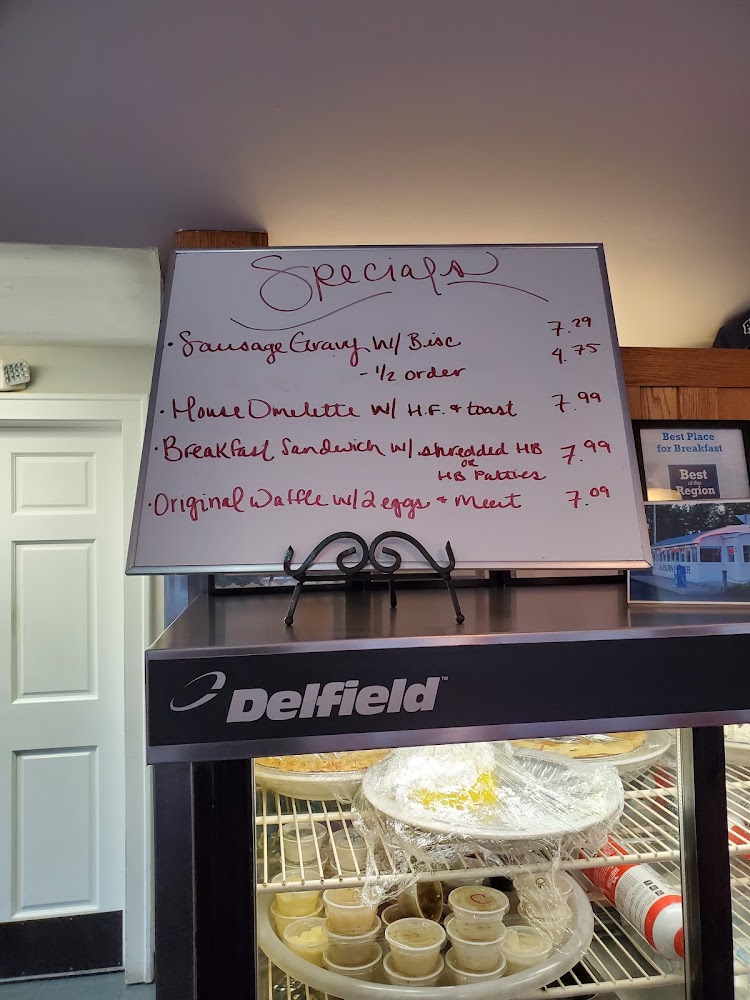 Specials
· Sausage Gravy w/ Bisc 7.29
- 1/2 order 4.75
· House Omelette w/ H.F. + toast 7.99
· Breakfast Sandwich w/ shredded HB 7.99
or
HB Patties
· Original Waffle w/ 2 eggs + Meat 7.09
Best Place
for Breakfast
Best
of the
Region
Delfield™
C